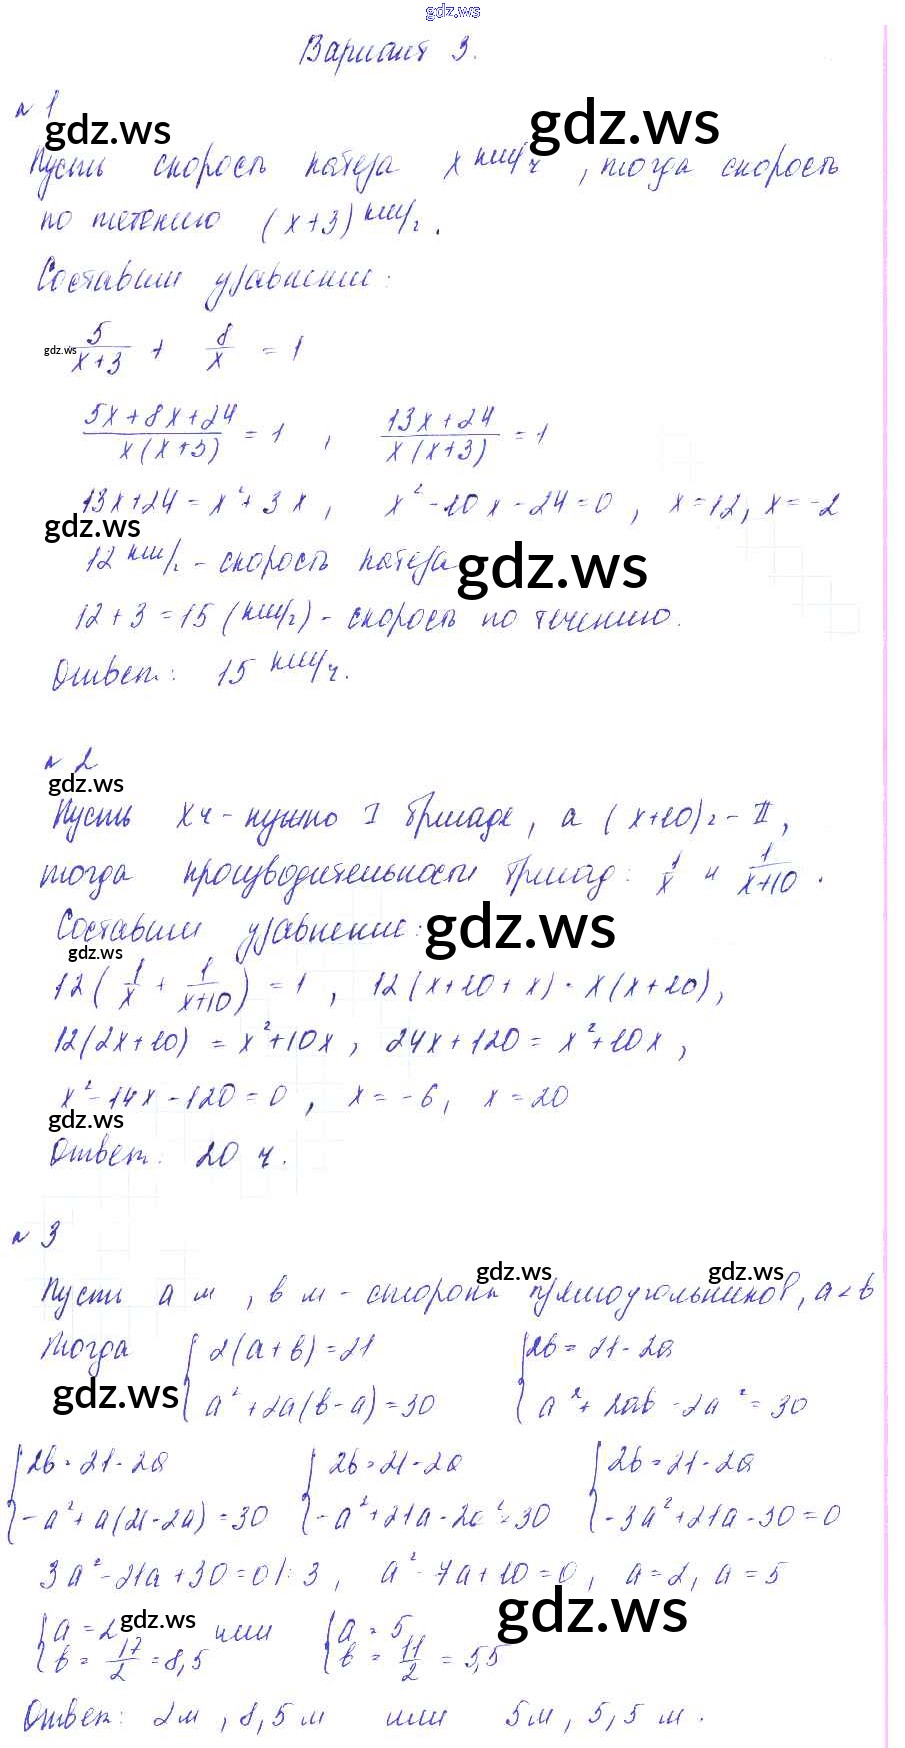 gdz.ws
Вариант 3.
№ 1
gdz.ws gdz.ws
Пусть скорость катера x км/ч, тогда скорость
по течению (x+3) км/ч.
Составим уравнение:
gdz.ws 5/(x+3) + 8/x = 1
(5x+8x+24)/(x(x+3)) = 1, (13x+24)/(x(x+3)) = 1
13x+24 = x²+3x, x²-10x-24=0, x=12, x=-2
gdz.ws
12 км/ч - скорость катера
gdz.ws
12+3=15 (км/ч) - скорость по течению.
Ответ: 15 км/ч.
№ 2
gdz.ws
Пусть x ч - нужно I бригаде, а (x+10) ч - II,
тогда производительности бригад: 1/x и 1/(x+10).
Составим уравнение:
gdz.ws
gdz.ws
12(1/x + 1/(x+10)) = 1, 12(x+10+x) = x(x+10),
12(2x+10) = x²+10x, 24x+120 = x²+10x,
x²-14x-120=0, x=-6, x=20
gdz.ws
Ответ: 20 ч.
№ 3
gdz.ws gdz.ws
Пусть a м, b м - стороны прямоугольников, a<b
Тогда { 2(a+b)=21 { 2b=21-2a
gdz.ws a²+2a(b-a)=30 a²+2ab-2a²=30
{ 2b=21-2a { 2b=21-2a { 2b=21-2a
-a²+a(21-2a)=30 -a²+21a-2a²=30 -3a²+21a-30=0
3a²-21a+30=0 |:3, a²-7a+10=0, a=2, a=5
gdz.ws gdz.ws
{ a=2 или { a=5
b=17/2=8,5 b=11/2=5,5
Ответ: 2м, 8,5м или 5м, 5,5м.